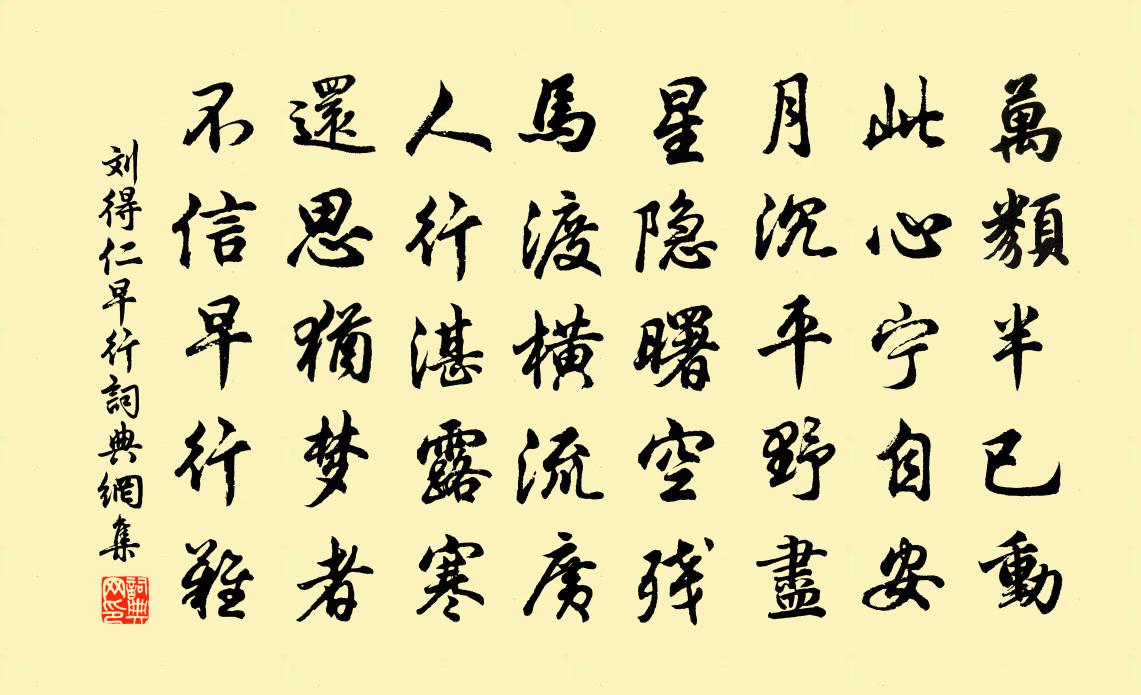 萬類半已動
此心宁自安
月沉平野盡
星隐曙空残
馬渡橫流廣
人行湛露寒
還思猶梦者
不信早行難
刘得仁早行詞典網集
詞典網印